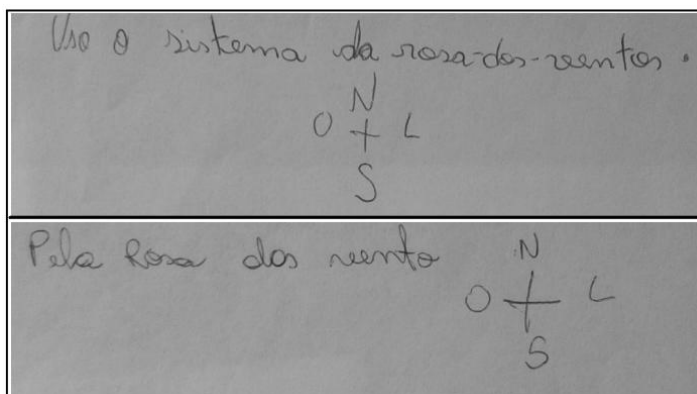 Uso o sistema da rosa-dos-ventos.
N
O L
S
Pela Rosa dos vento
N
O L
S